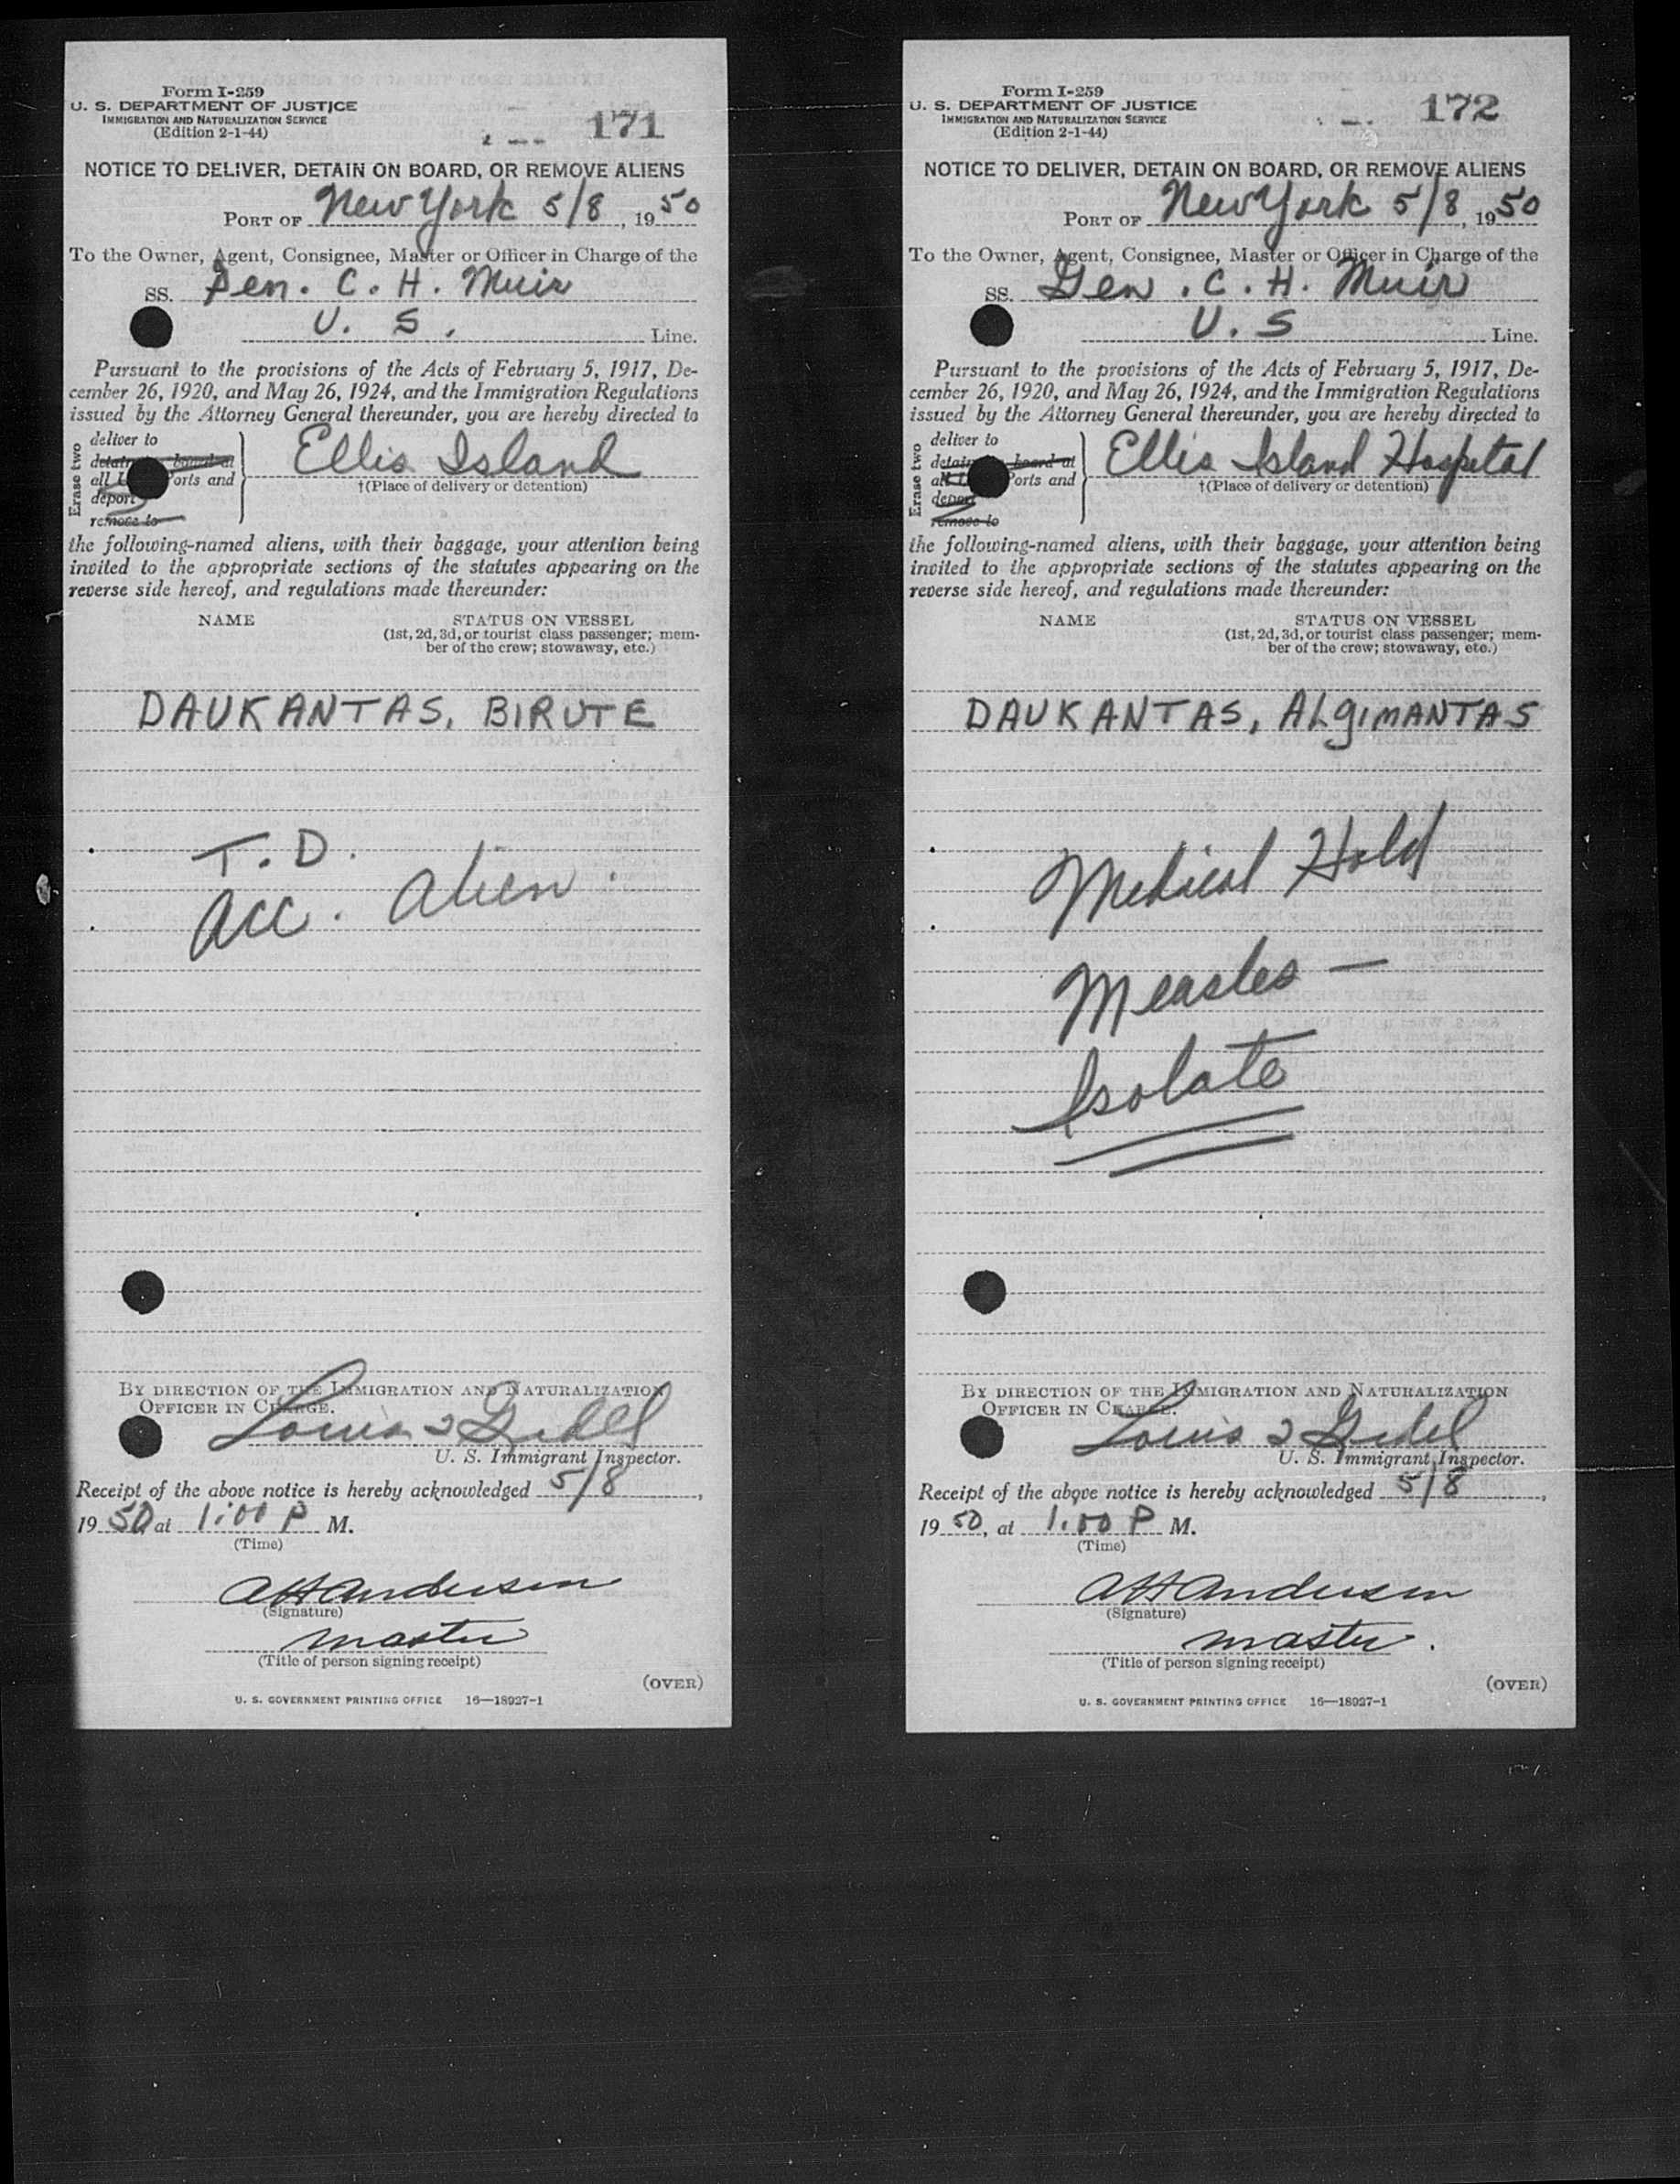 Form I-259
U. S. DEPARTMENT OF JUSTICE
IMMIGRATION AND NATURALIZATION SERVICE
(Edition 2-1-44)
171
NOTICE TO DELIVER, DETAIN ON BOARD, OR REMOVE ALIENS
PORT OF New York 5/8, 1950
To the Owner, Agent, Consignee, Master or Officer in Charge of the
SS. Gen. C. H. Muir
U. S. Line.
Pursuant to the provisions of the Acts of February 5, 1917, De-
cember 26, 1920, and May 26, 1924, and the Immigration Regulations
issued by the Attorney General thereunder, you are hereby directed to
Erase two
deliver to
detain board at
all Ports and
deport
remove to
Ellis Island
†(Place of delivery or detention)
the following-named aliens, with their baggage, your attention being
invited to the appropriate sections of the statutes appearing on the
reverse side hereof, and regulations made thereunder:
NAME STATUS ON VESSEL
(1st, 2d, 3d, or tourist class passenger; mem-
ber of the crew; stowaway, etc.)
DAUKANTAS, BIRUTE
T. D.
Acc. Alien.
BY DIRECTION OF THE IMMIGRATION AND NATURALIZATION
OFFICER IN CHARGE.
Louis
U. S. Immigrant Inspector.
Receipt of the above notice is hereby acknowledged 5/8,
1950, at 1:00 P M.
(Time)
AH Anderson
(Signature)
Master
(Title of person signing receipt)
(OVER)
U. S. GOVERNMENT PRINTING OFFICE 16—18927-1
Form I-259
U. S. DEPARTMENT OF JUSTICE
IMMIGRATION AND NATURALIZATION SERVICE
(Edition 2-1-44)
172
NOTICE TO DELIVER, DETAIN ON BOARD, OR REMOVE ALIENS
PORT OF New York 5/8, 1950
To the Owner, Agent, Consignee, Master or Officer in Charge of the
SS. Gen. C. H. Muir
U. S Line.
Pursuant to the provisions of the Acts of February 5, 1917, De-
cember 26, 1920, and May 26, 1924, and the Immigration Regulations
issued by the Attorney General thereunder, you are hereby directed to
Erase two
deliver to
detain board at
all Ports and
deport
remove to
Ellis Island Hospital
†(Place of delivery or detention)
the following-named aliens, with their baggage, your attention being
invited to the appropriate sections of the statutes appearing on the
reverse side hereof, and regulations made thereunder:
NAME STATUS ON VESSEL
(1st, 2d, 3d, or tourist class passenger; mem-
ber of the crew; stowaway, etc.)
DAUKANTAS, ALgIMANTAS
Medical Hold
Measles —
Isolate
BY DIRECTION OF THE IMMIGRATION AND NATURALIZATION
OFFICER IN CHARGE.
Louis
U. S. Immigrant Inspector.
Receipt of the above notice is hereby acknowledged 5/8,
1950, at 1:00 P M.
(Time)
AH Anderson
(Signature)
Master.
(Title of person signing receipt)
(OVER)
U. S. GOVERNMENT PRINTING OFFICE 16—18927-1